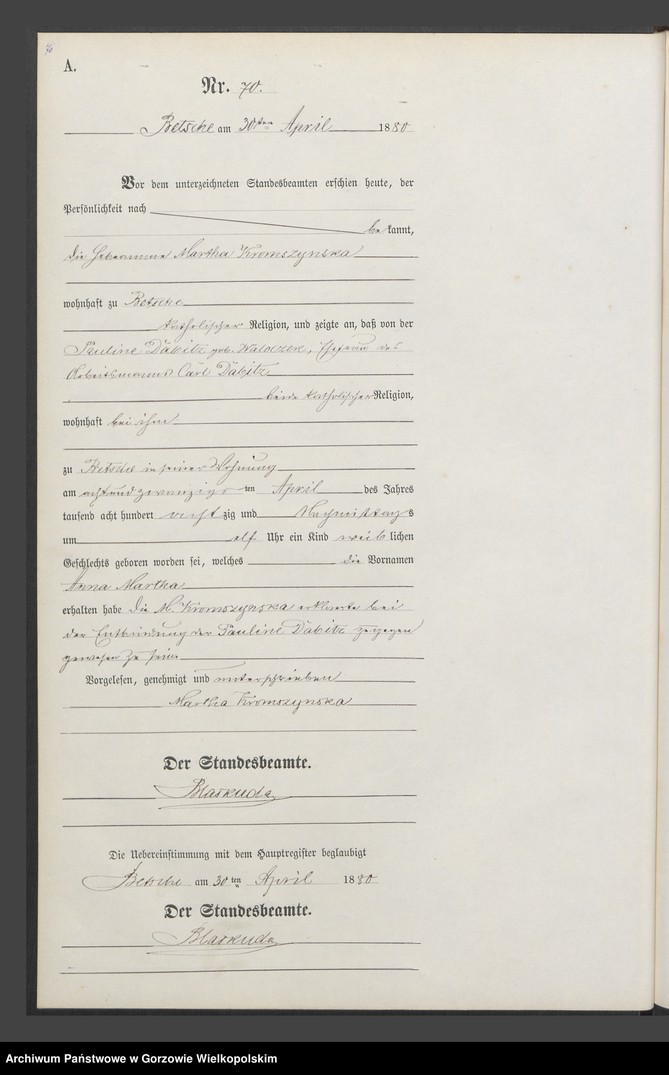 A.
Nr. 70.
Betsche am 30ten April 1880
Vor dem unterzeichneten Standesbeamten erschien heute, der
Persönlichkeit nach
bekannt,
die Hebeamme Martha Kromszynska
wohnhaft zu Betsche
katholischer Religion, und zeigte an, daß von der
Pauline Däbitz geb. Waloczek, Ehefrau des
Arbeitsmanns Carl Däbitz
beide katholischer Religion,
wohnhaft bei ihm
zu Betsche in seiner Wohnung
am achtundzwanzigsten April des Jahres
tausend acht hundert achtzig und Nachmittags
um elf Uhr ein Kind weiblichen
Geschlechts geboren worden sei, welches die Vornamen
Anna Martha
erhalten habe Die M. Kromszynska erklaerte bei
der Entbindung der Pauline Däbitz zugegen
gewesen zu sein
Vorgelesen, genehmigt und unterschrieben
Martha Kromszynska
Der Standesbeamte.
Die Uebereinstimmung mit dem Hauptregister beglaubigt
Betsche am 30ten April 1880
Der Standesbeamte.
Archiwum Państwowe w Gorzowie Wielkopolskim